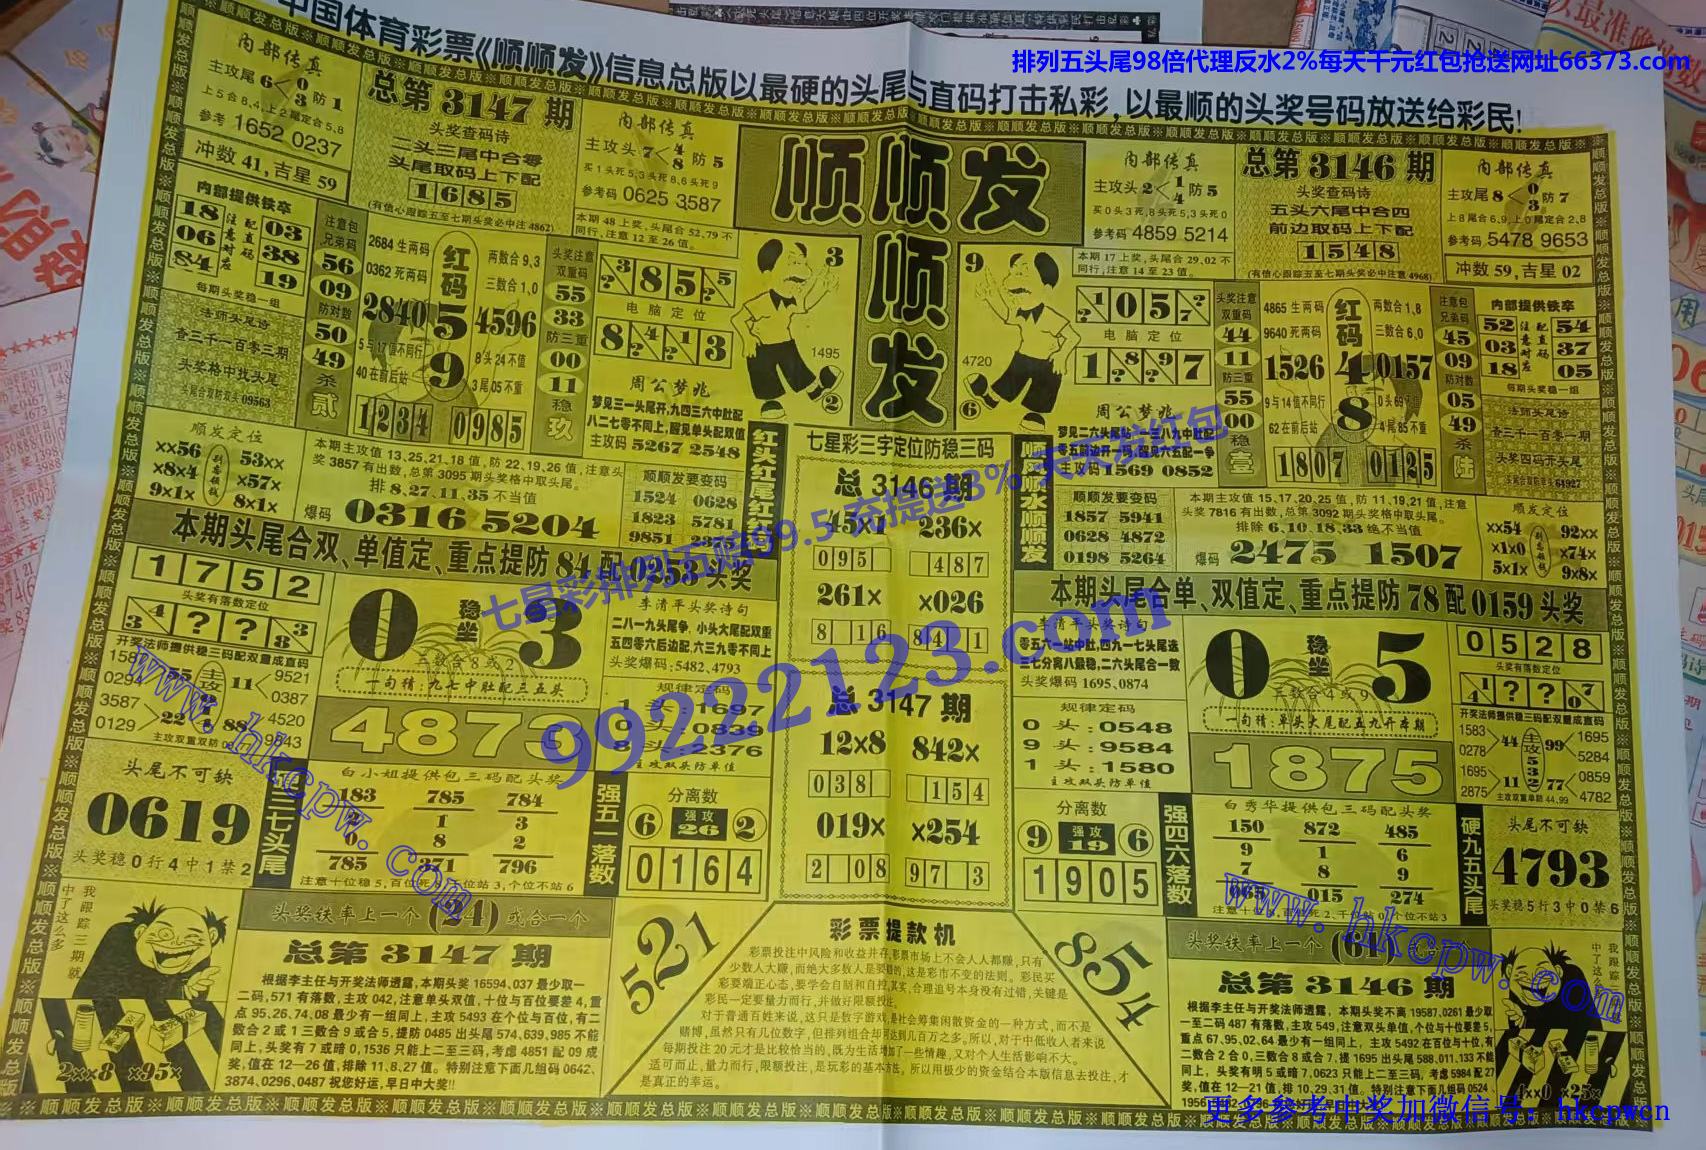 中国体育彩票《顺顺发》信息总版以最硬的头尾与直码打击私彩,以最顺的头奖号码放送给彩民!
排列五头尾98倍代理反水2%每天千元红包抢送网址66373.com
顺顺发
顺
发
内部传真
主攻尾6<0 3 防1
上5合8,4,上2尾定合5,8
参考 1652 0237
冲数 41,吉星 59
总第3147期
头奖查码诗
二头三尾中合零
头尾取码上下配
1685
(有信心跟踪五至七期头奖必中注 4862)
内部传真
主攻头7<4 8 防5
买1头死5,3头死8,6头死9
参考码 0625 3587
本期 48 上奖,头尾合 52,79 不同行,注意 12 至 26 值。
内部传真
主攻头2<1 4 防5
买0头3死,8头死5,3头死0
参考码 4859 5214
本期 17 上奖,头尾合 29,02 不同行,注意 14 至 23 值。
总第3146期
头奖查码诗
五头六尾中合四
前边取码上下配
1548
(有信心跟踪五至七期头奖必中注意 4968)
内部传真
主攻尾8<0 3 防7
上8尾合6,9,上0尾定合2,8
参考码 5478 9653
冲数 59,吉星 02
内部提供铁卒
18 注配 03
06 意直 38
84 对码 19
每期头奖稳一组
法师头尾诗
查三千一百零三期
头奖格中找头尾
头尾合双防双头 09563
注意包兄弟码
56
09
防对数
50
49
杀
贰
2684 生两码
0362 死两码
红码
两数合 9,3
三数合 1,0
2840 5 4596
5与17值不同行
9
8头24不值
40 在前后站
3尾05不重
1234 0985
头奖注意双重码
55
33
防三重
00
11
稳
玖
3? 8 5 ?5
电脑定位
8 ?4 1? 3
周公梦兆
梦见三一头尾开,九四三六中肚配
八二七零不同上,醒见单头配双值
主攻码 5267 2548
3
1495
2
9
4720
6
1? 0 5 7?
电脑定位
1 ?8 9? 7
周公梦兆
主攻码 1569 0852
头奖注意双重码
44
11
防三重
55
00
稳
壹
4865 生两码
9640 死两码
红码
两数合 1,8
三数合 6,0
1526 4 0157
9与14值不同行
8
62 在前后站
4尾85不重
1807 0125
注意包兄弟码
45
09
防对数
05
49
杀
陆
内部提供铁卒
52 54
03 37
18 05
每期头奖稳一组
法师头尾诗
查三千一百零一期
头奖四码开头尾
头尾合双防单头 64927
顺发定位
xx56 53xx
×8x4 ×57x
9x1x 8x1x
本期主攻值 13,25,21,18 值,防 22,19,26 值,注意头奖 3857 有出数,总第 3095 期头奖格中取头尾。
排 8,27,11,35 不当值
爆码 0316 5204
顺顺发要变码
1524 0628
1823 5781
红头红尾红红红
本期头尾合双、单值定、重点提防 84 配 0253 头奖
七星彩三字定位防稳三码
总 3146 期
45x7 236x
095 487
261x x026
8 16 84 1
总 3147 期
12x8 842x
038 154
019x x254
2 08 97 3
顺顺发要变码
1857 5941
0628 4872
0198 5264
本期主攻值 15,17,20,25 值,防 11,19,21 值,注意头奖 7816 有出数,总第 3092 期头奖格中取头尾。
排除 6,10,18,33 绝不当值
爆码 2475 1507
顺发定位
xx54 92xx
x1x0 x74x
5x1x 9x8x
本期头尾合单、双值定、重点提防 78 配 0159 头奖
1752
头奖有落数定位
开奖法师提供稳三码配双重成直码
0 稳坐 3
三数合8或2
一句精:九七中肚配三五头
李清平头奖诗句
二八一九头尾争,小头大尾配双重
五四零六后边配,六三九零不同上
头奖爆码:5482,4793
规律定码
1 头:1697
0 头:0839
8 头:2376
主攻双头防单值
4873
白小姐提供包三码配头奖
183 785 784
785 371 796
强五一落数
分离数
6 强攻26 2
0164
头尾不可缺
0619
头奖稳0行4中1禁2
李清平头奖诗句
零五六一站中肚,四九一七头尾选
三七分离八最稳,二六头尾合一数
头奖爆码 1695,0874
规律定码
0 头:0548
9 头:9584
1 头:1580
主攻双头防单值
0 稳坐 5
三数合4或9
一句精:单头大尾配五九开本期
0528
头奖有落数定位
开奖法师提供稳三码配双重成直码
1875
白秀华提供包三码配头奖
150 872 485
9 1 6
7 8 9
665 015 274
分离数
9 强攻19 6
1905
强四六落数
硬九五头尾
头尾不可缺
4793
头奖稳5行3中0禁6
我跟踪三期就中了这么多
2xx8 x95x
头奖铁率上一个(24)或合一个
总第3147期
根据李主任与开奖法师透露,本期头奖 16594,037 最少取一
二码,571 有落数,主攻 042,注意单头双值,十位与百位要差 4,重
点 95,26,74,08 最少有一组同上,主攻 5493 在个位与百位,有二
数合 2 或 1 三数合 9 或合 5,提防 0485 出头尾 574,639,985 不能
同上,头奖有 7 或暗 0,1536 只能上二至三码,考虑 4851 配 09 成
奖,值在 12—26 值,排除 11,8,27 值。特别注意下面几组码 0642,
3874,0296,0487 祝您好运,早日中大奖!!
521
彩票提款机
彩票投注中风险和收益并存,彩票市场上不会人人都赚,只有
少数人大赚,而绝大多数人是要赔的,这是彩市不变的法则。彩民买
彩要端正心态,要学会自制和自控,其实,合理追号本身没有过错,关键是
彩民一定要量力而行,并做好限额投注。
对于普通百姓来说,这只是数字游戏,是社会筹集闲散资金的一种方式,而不是
赌博,虽然只有几位数字,但排列组合却可达到几百万之多。所以,对于中低收入者来说
每期投注 20 元才是比较恰当的,既为生活增加了一些情趣,又对个人生活影响不大。
适可而止,量力而行,限额投注,是玩彩的基本方法,所以用极少的资金结合本版信息去投注,才
是真正的幸运。
854
头奖铁率上一个(61)
总第3146期
根据李主任与开奖法师透露,本期头奖不离 19587,0261 最少取
一至二码 487 有落数,主攻 549,注意双头单值,个位与十位要差 5,
重点 67,95,02,64 最少有一组同上,主攻 5492 在百位与十位,有
二数合 2 合 0,三数合 8 或合 7,提 1695 出头尾 588,011,133 不能
同上,头奖有明 5 或暗 7,0623 只能上二至三码,考虑 5984 配 27
奖,值在 12—21 值,排 10,29,31 值。特别注意下面几组码 0524,
4xx0 x25x
七星彩排列五赔99.5 充提送3% 天天发红包
99222123.com
www.hkcpw.com
www.hkcpw.com
更多参考中奖加微信号:hkcpwcn